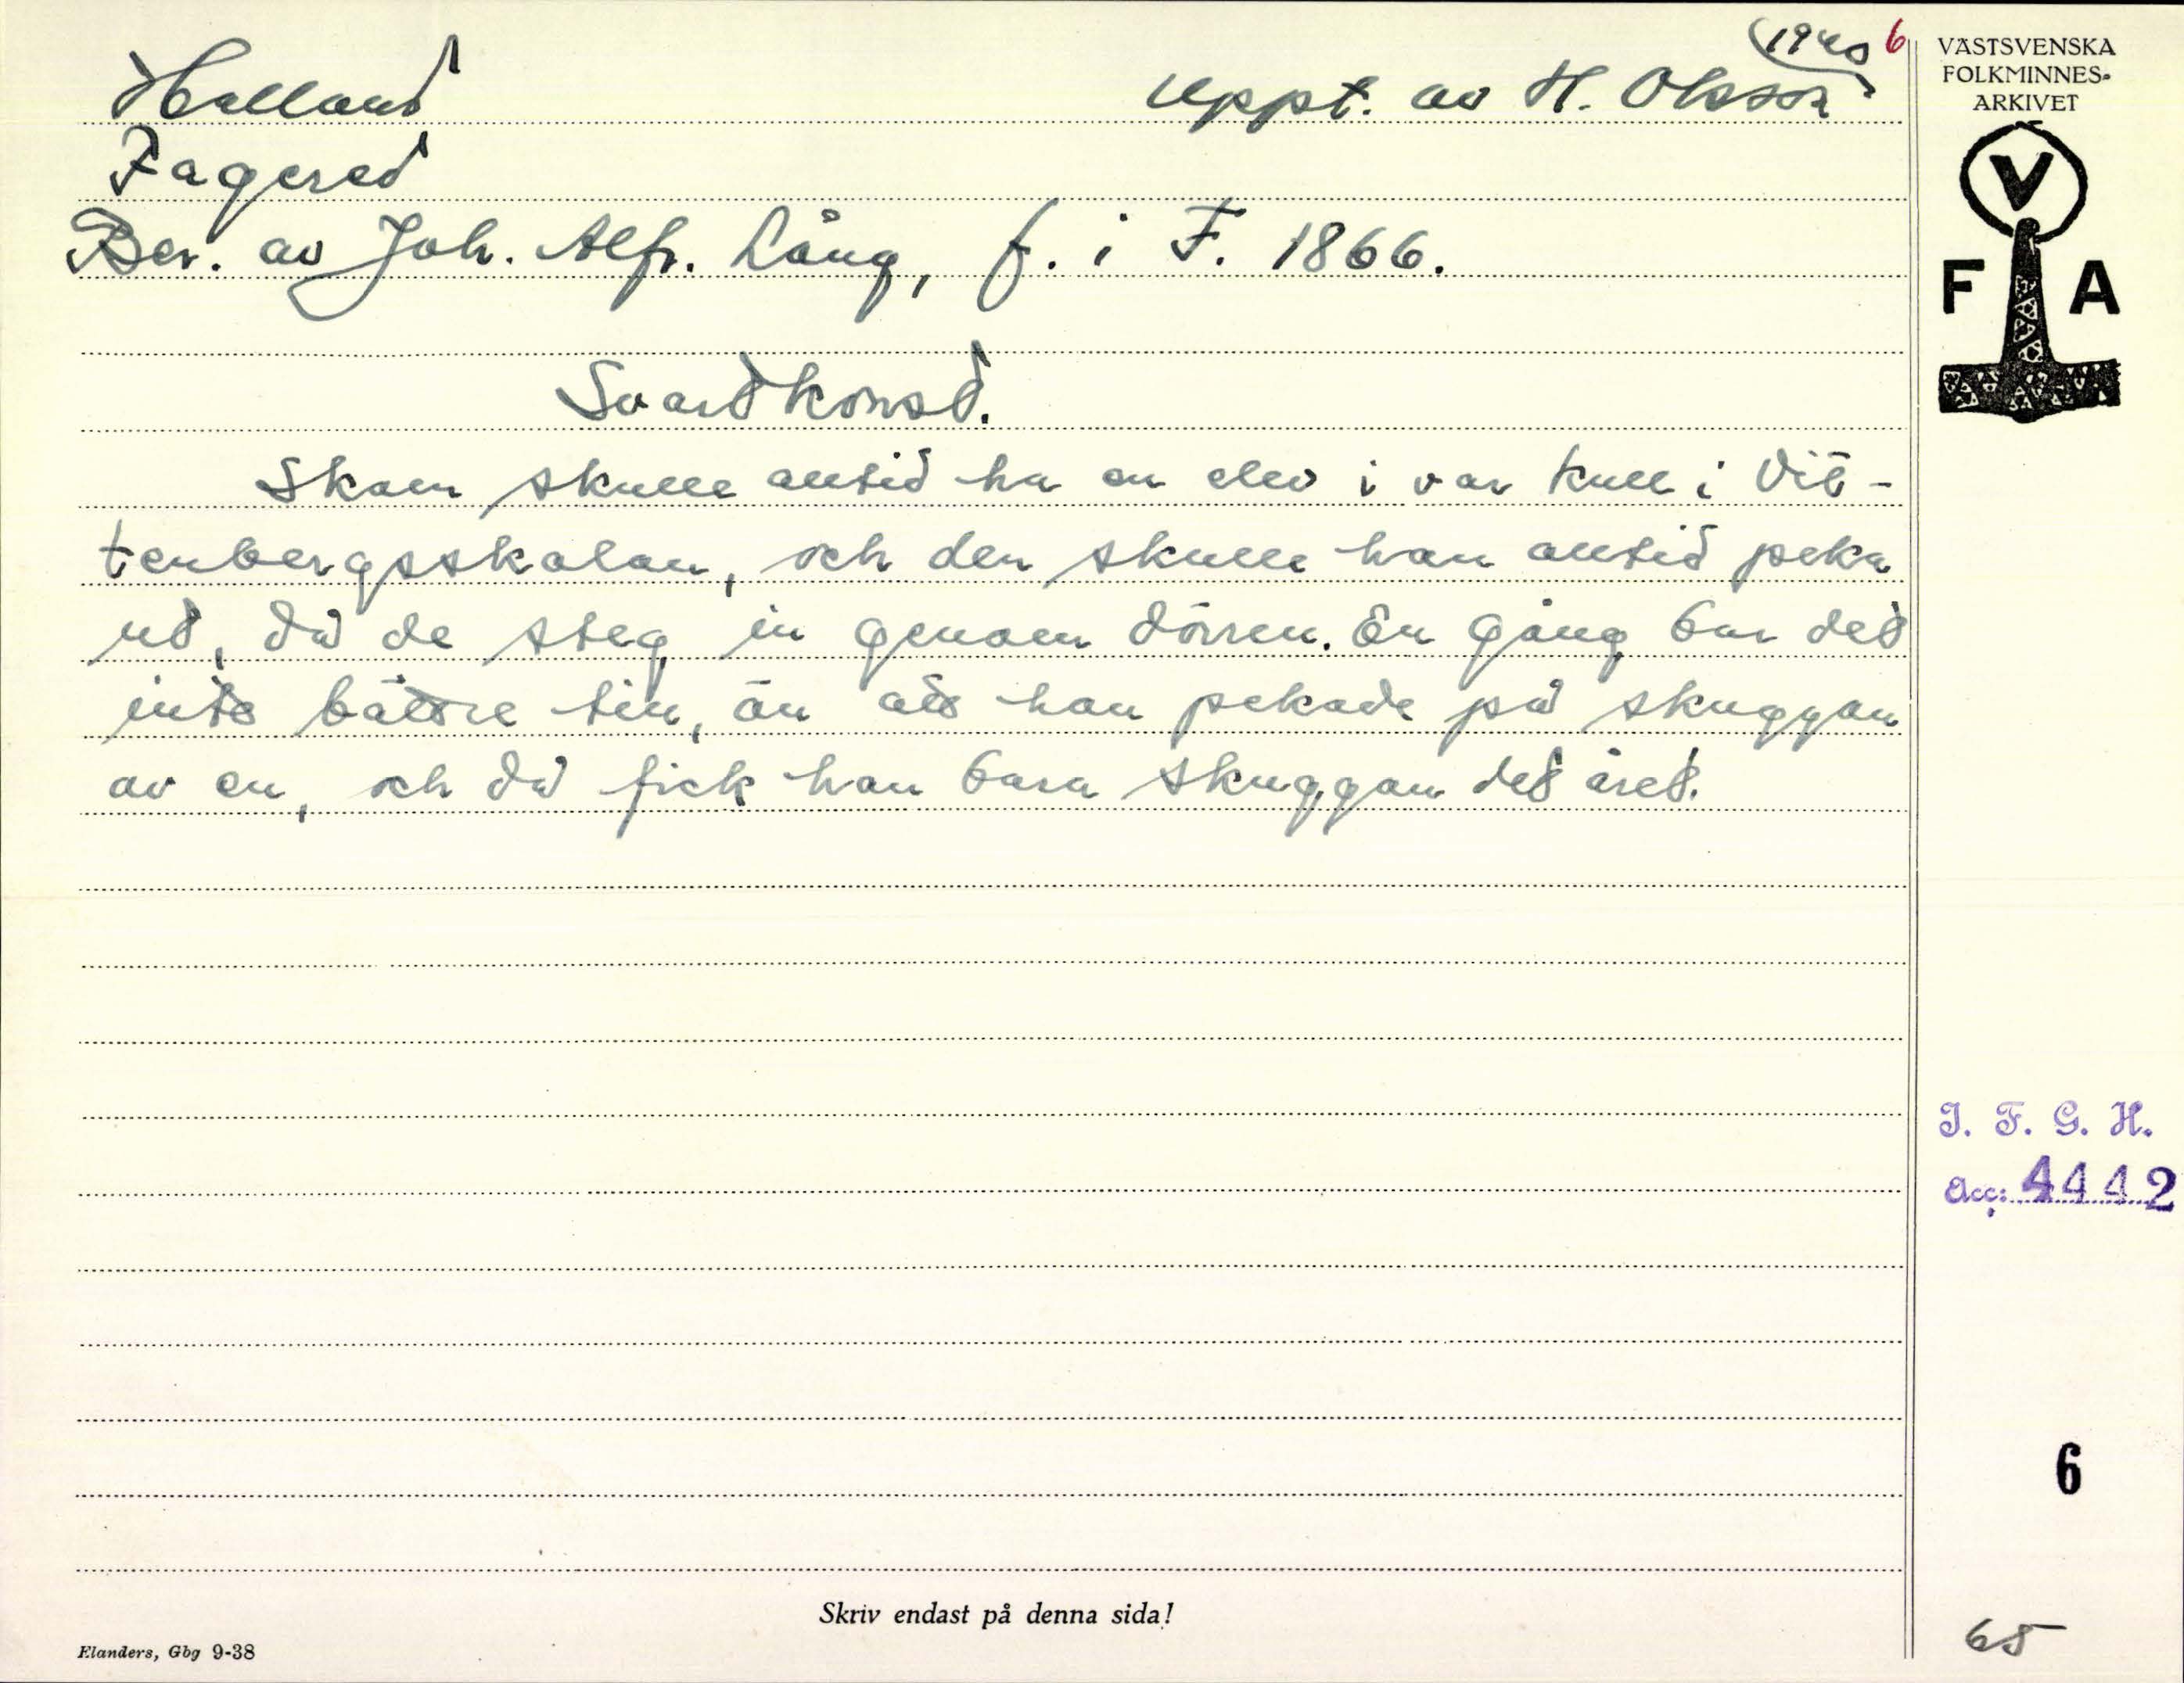 1940 6
Halland
Uppt. av H. Olsson
Fagered
Ber. av Joh. Alfr. Lång, f. i F. 1866.
Svartkonst.
Skam skulle alltid ha en elev i var kull i Vit-
tenbergsskolan, och den skulle han alltid peka
ut, då de steg in genom dörren. En gång bar det
inte bättre till, än att han pekade på skuggan
av en, och då fick han bara skuggan det året.
VÄSTSVENSKA
FOLKMINNES-
ARKIVET
V
F A
I. F. G. H.
Acc: 4442
6
Skriv endast på denna sida!
Elanders, Gbg 9-38
65